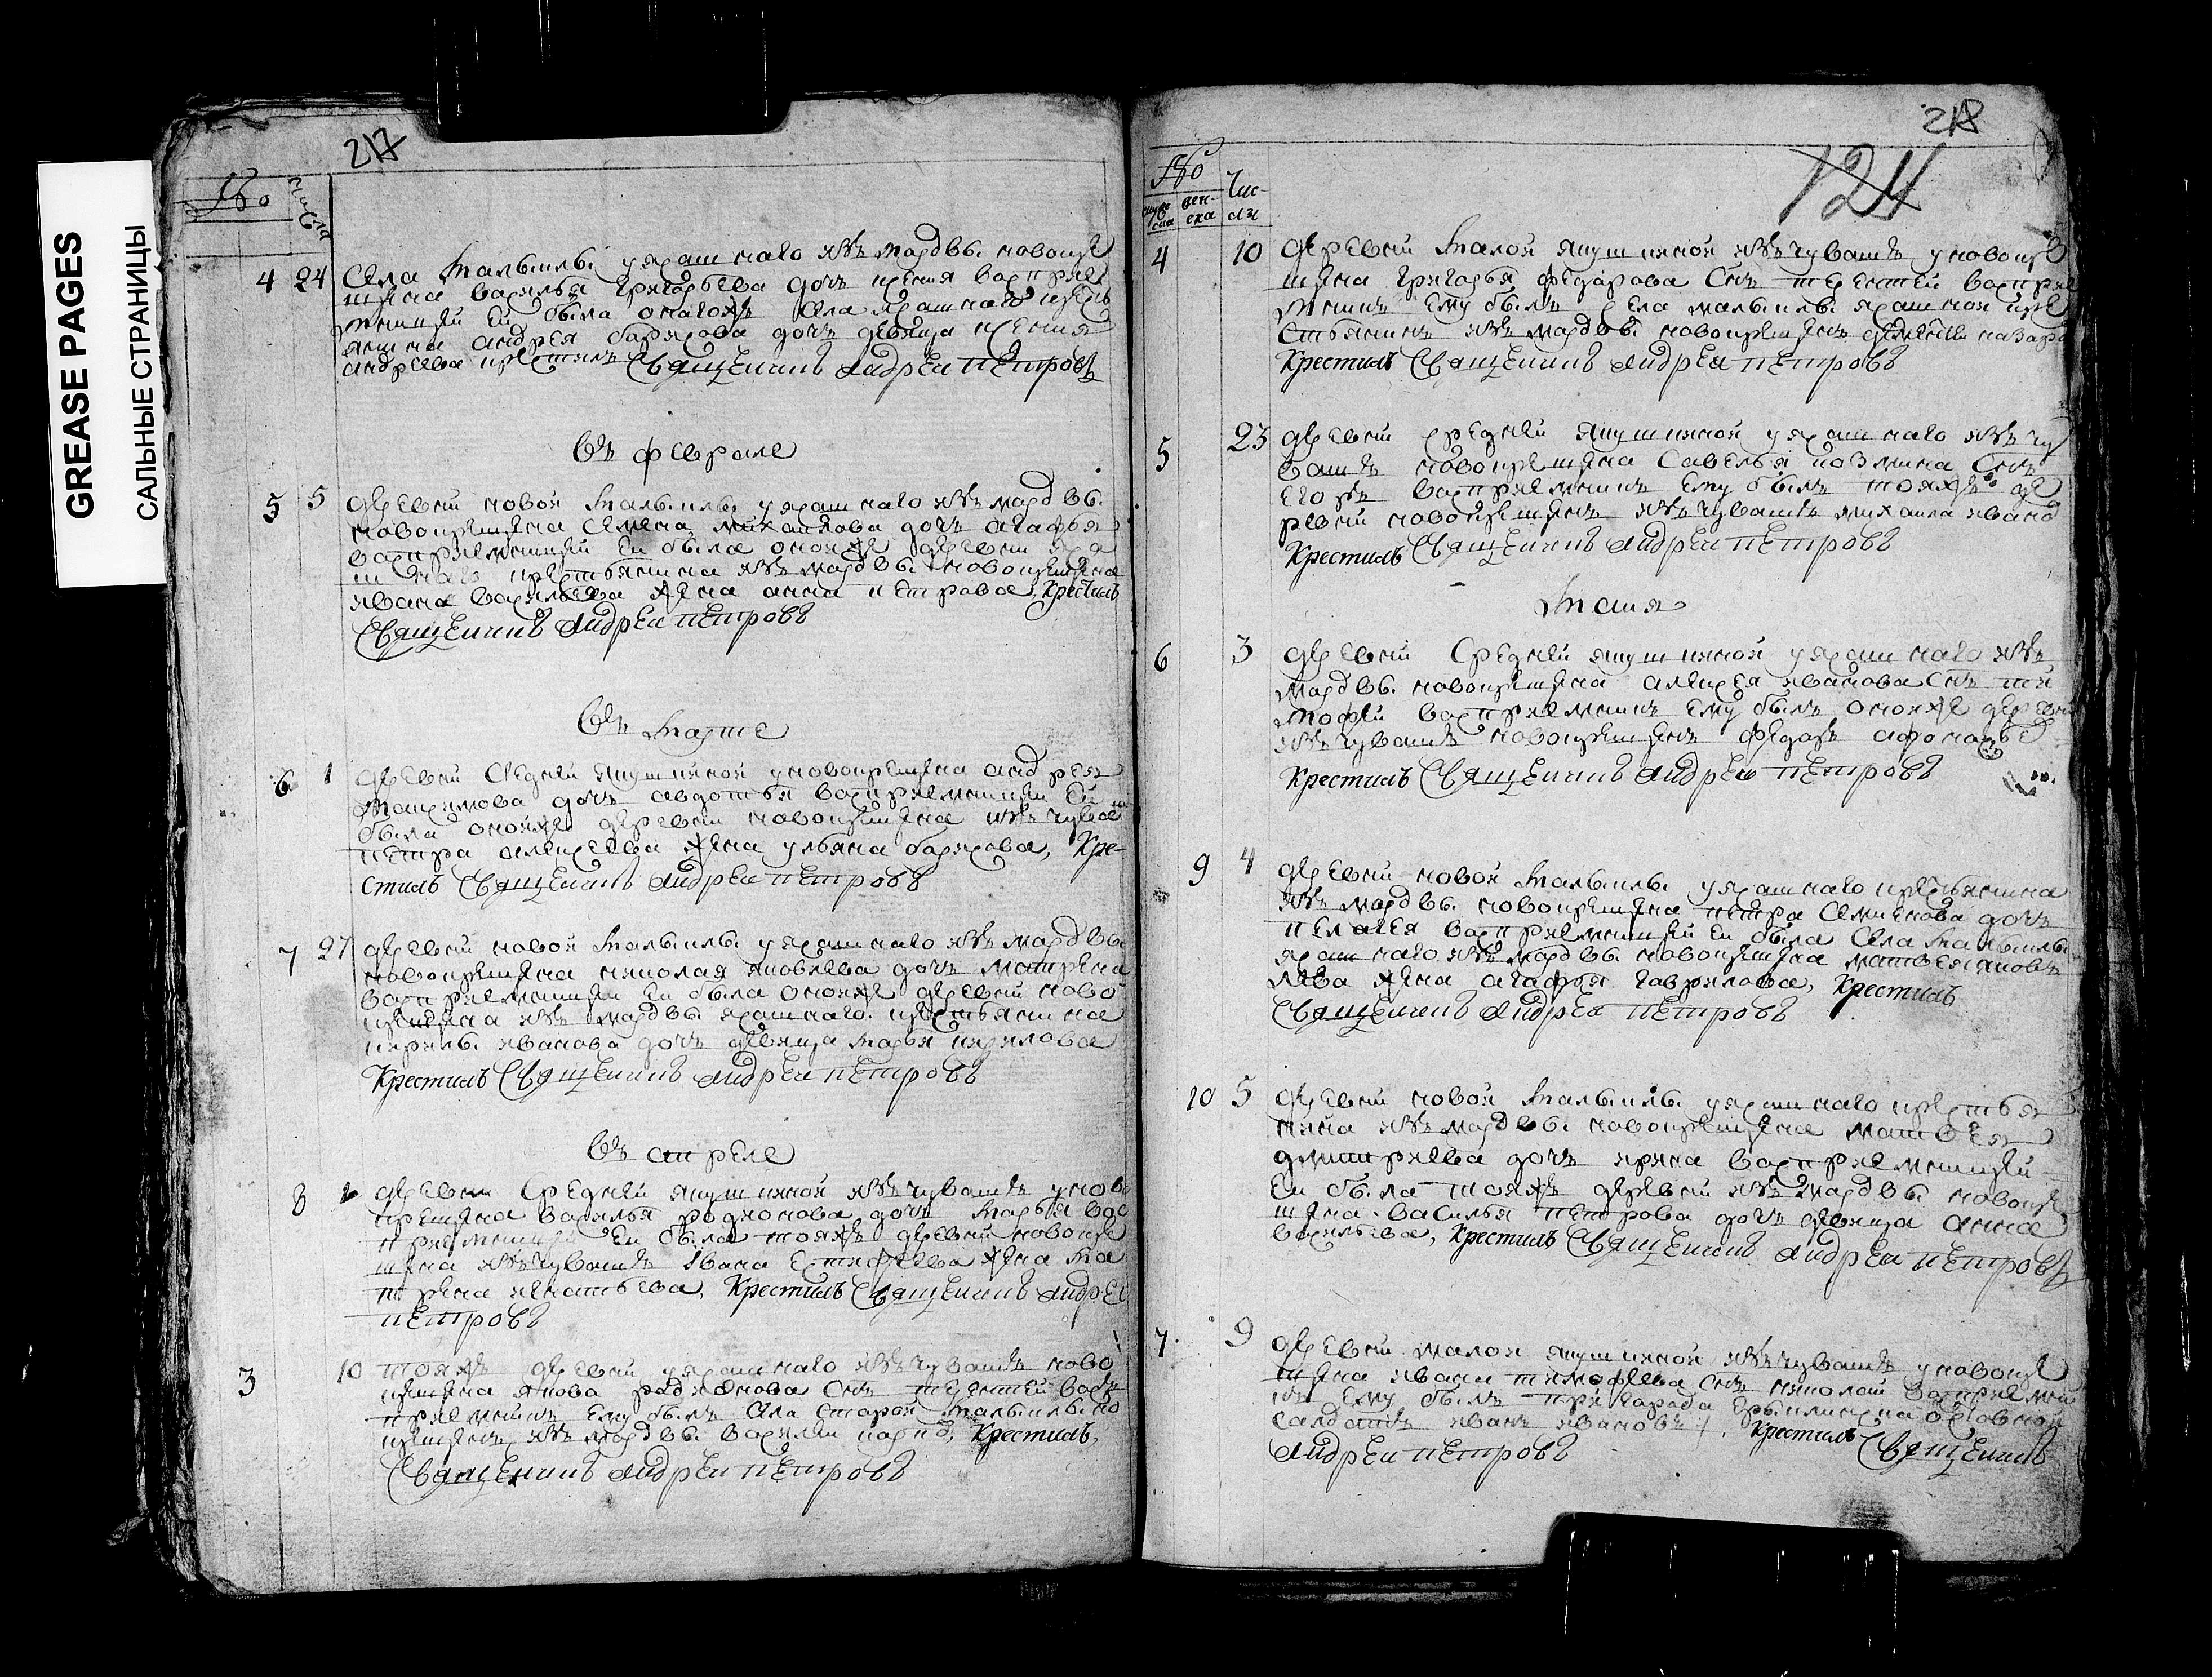 GREASE PAGES
САЛЬНЫЕ СТРАНИЦЫ
217
№
числа
4 24 Села малыклы уясашнаго изъ мордвы новокре
щена василья григорьева дочь ксения восприем
ницей ей была онагожъ села ясашнаго кресть
янина андрея борисова дочь девица ксения
андреева крестилъ Священникъ Андреи петровъ
Въ феврале
5 5 деревни новой малыклы уясашнаго изъ мордвы
новокрещена семена михаилова дочь агафья
восприемницей ей была оной же деревни яса
шнаго крестьянина изъ мордвы новокрещена
ивана васильева жена анна петрова, Крестилъ
Священникъ Андреи петровъ
Въ марте
6 1 деревни средней якушкиной уновокрещена андрея
максимова дочь авдотья восприемницей ей
была оной же деревни новокрещена изъ чуваш
петра алексеева жена ульяна борисова, Кре-
стилъ Священникъ Андреи петровъ
7 27 деревни новой малыклы уясашнаго изъ мордвы
новокрещена николая яковлева дочь матрена
восприемницей ей была оной же деревни ново
крещена изъ мордвы ясашнаго крестьянина
кирилы иванова дочь девица марья кирилова
Крестилъ Священникъ Андреи петровъ
Въ апреле
8 деревни средней якушкиной изъ чувашъ уново
крещена василья родионова дочь марья вос
приемница ей была тояжъ деревни новокре
щена изъ чувашъ Ивана естифеева жена ма
трена игнатьева, Крестилъ Священникъ Андреи
петровъ
3 10 тояжъ деревни уясашнаго изъ чувашъ ново
крещена якова радионова сынъ терентей вос
приемникъ ему былъ села старой малыклы но
крещенъ изъ мордвы василеи Крестилъ,
Священникъ Андреи петровъ
218
124
№
муже
ска
жен-
ска
Чис-
ла
4 10 деревни малой якушкиной изъ чувашъ уновокре
щена григорья федарова сынъ терентей восприе
мникъ ему былъ села малыклы ясашной кре
стьянинъ изъ мордвы новокрещенъ
Крестилъ Священникъ Андреи петровъ
5 23 деревни средней якушкиной уясашнаго изъ чу
вашъ новокрещена савелья козмина сынъ
егоръ восприемникъ ему былъ тояжъ де
ревни новокрещенъ изъ чувашъ михаила ивано
Крестилъ Священникъ Андреи петровъ
Маия
6 3 деревни средней якушкиной уясашнаго изъ
мордвы новокрещена алексея иванова сынъ ти
мофей восприемникъ ему былъ оной же деревни
изъ чувашъ новокрещенъ федоръ афонасье
Крестилъ Священникъ Андреи петровъ
9 4 деревни новой малыклы уясашнаго крестьянина
изъ мордвы новокрещена петра семенова дочь
пелагея восприемницей ей была села малыклы
ясашнаго изъ мордвы новокрещена матвея яков
лева жена агафья гаврилова, Крестилъ
Священникъ Андреи петровъ
10 5 деревни новой малыклы уясашнаго крестья
нина изъ мордвы новокрещена матвея
дмитриева дочь ирина восприемницей
ей была тояжъ деревни изъ мордвы новокре
щена василья петрова дочь девица анна
васильева, Крестилъ Священникъ Андреи петровъ
7 9 деревни малой якушкиной изъ чувашъ уновокре
щена ивана тимофеева сынъ николай восприемни
къ ему былъ пригорада
салдатъ иванъ ивановъ. Крестилъ Священникъ
Андреи петровъ